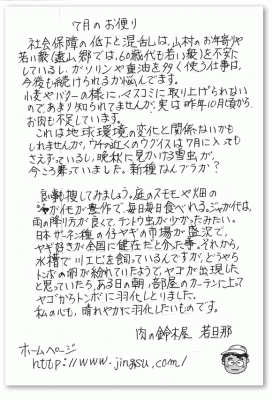 7月のお便り
社会保障の低下と混乱は、山村のお年寄りや
若い衆(遠山郷では、60歳代も若い衆)を不安に
しているし、ガソリンや重油を多く使う仕事は、
今後も続けられるか悩んでます。
小麦やバターの様に、マスコミに取り上げられない
ので、あまり知られてませんが、実は昨年10月頃から、
お肉も不足しています。
これは地球環境の変化と関係ないかも
しれませんが、ウチの近くのウグイスは7月に入っても
さえずっているし、晩秋に見かける雪虫が、
今ころ舞っていました。新種なんブラか?
気動転換してみましょう。庭のスモモや畑の
ジャガイモが豊作で、毎日毎日食べれる。ジャガイモは、
雨の降り方が良くて、テントウ虫が少なかったみたい。
日本ザーネン種の仔ヤギの市場が盛況で、
ヤギ好きが全国に健在だと分った事。それから、
水槽で川エビを飼っているんですが、どうやら
トンボの卵が紛れていたようで、ヤゴが出現した
と思っていたら、ある日の朝、部屋のカーテンに上って
ヤゴからトンボに羽化しとりました。
私の心も、晴れやかに羽化したいものです。
肉の鈴木屋 若旦那
ホームページ
http://www.jingsu.com/